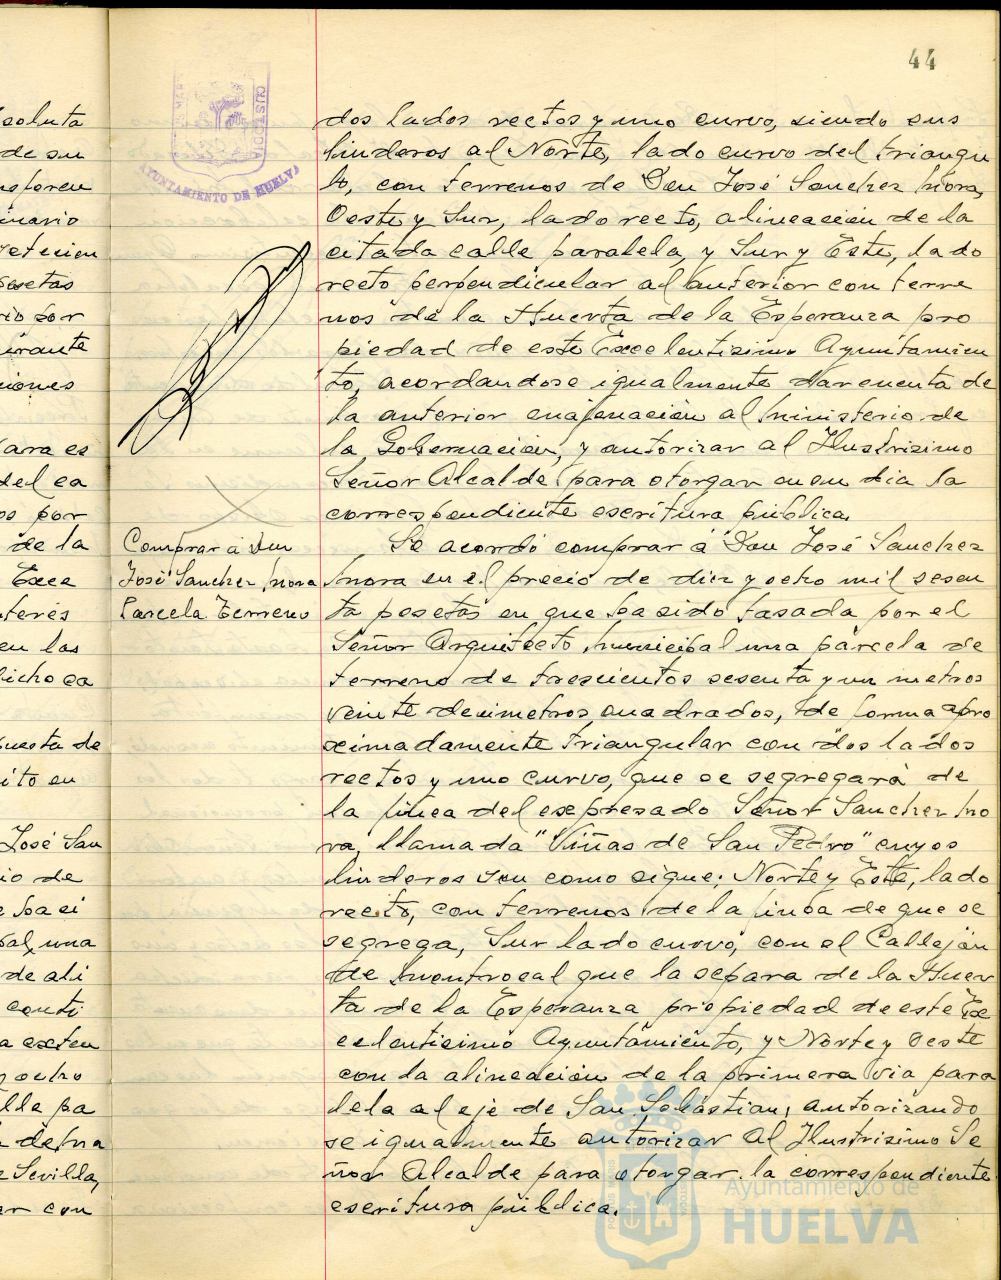 44
CUSTODIA
AYUNTAMIENTO DE HUELVA
soluta
de su
inario
pesetas
por
ciones
para es
del ca
os por
de la
Exce
terés
en las
dicho ca
puesta de
ito en
José San
io de
una
de ali
conti
a exten
ocho
lle pa
Sevilla,
ar con
Comprar á Don
José Sanchez Mora
Parcela Terreno
dos lados rectos y uno curvo, siendo sus
linderos al Norte, lado curvo del triangu
lo, con terrenos de Don José Sanchez Mora,
Oeste y Sur, lado recto, alineación de la
citada calle paralela, y Sur y Este, lado
recto perpendicular al anterior con terre
nos de la Huerta de la Esperanza pro
piedad de este Excelentísimo Ayuntamien
to, acordandose igualmente dar cuenta de
la anterior enajenación al Ministerio de
la Gobernación, y autorizar al Ilustrisimo
Señor Alcalde para otorgar en su dia la
correspondiente escritura pública.
Se acordó comprar á Don José Sanchez
Mora en el precio de diez y ocho mil sesen
ta pesetas en que ha sido tasada por el
Señor Arquitecto Municipal una parcela de
terreno de trescientos sesenta y un metros
veinte decimetros cuadrados, de forma apro
ximadamente triangular con dos lados
rectos y uno curvo, que se segregará de
la finca del expresado Señor Sanchez Mo
ra, llamada "Viñas de San Pedro" cuyos
linderos son como sigue: Norte y Este, lado
recto, con terrenos de la finca de que se
segrega, Sur lado curvo, con el Callejón
de Montrocal que la separa de la Huer
ta de la Esperanza propiedad de este Ex
celentisimo Ayuntamiento, y Norte y Oeste
con la alineación de la primera via para
lela al eje de San Sebastian, autorizando
se igualmente autorizar al Ilustrisimo Se
ñor Alcalde para otorgar la correspondiente
escritura pública.
Ayuntamiento de
HUELVA